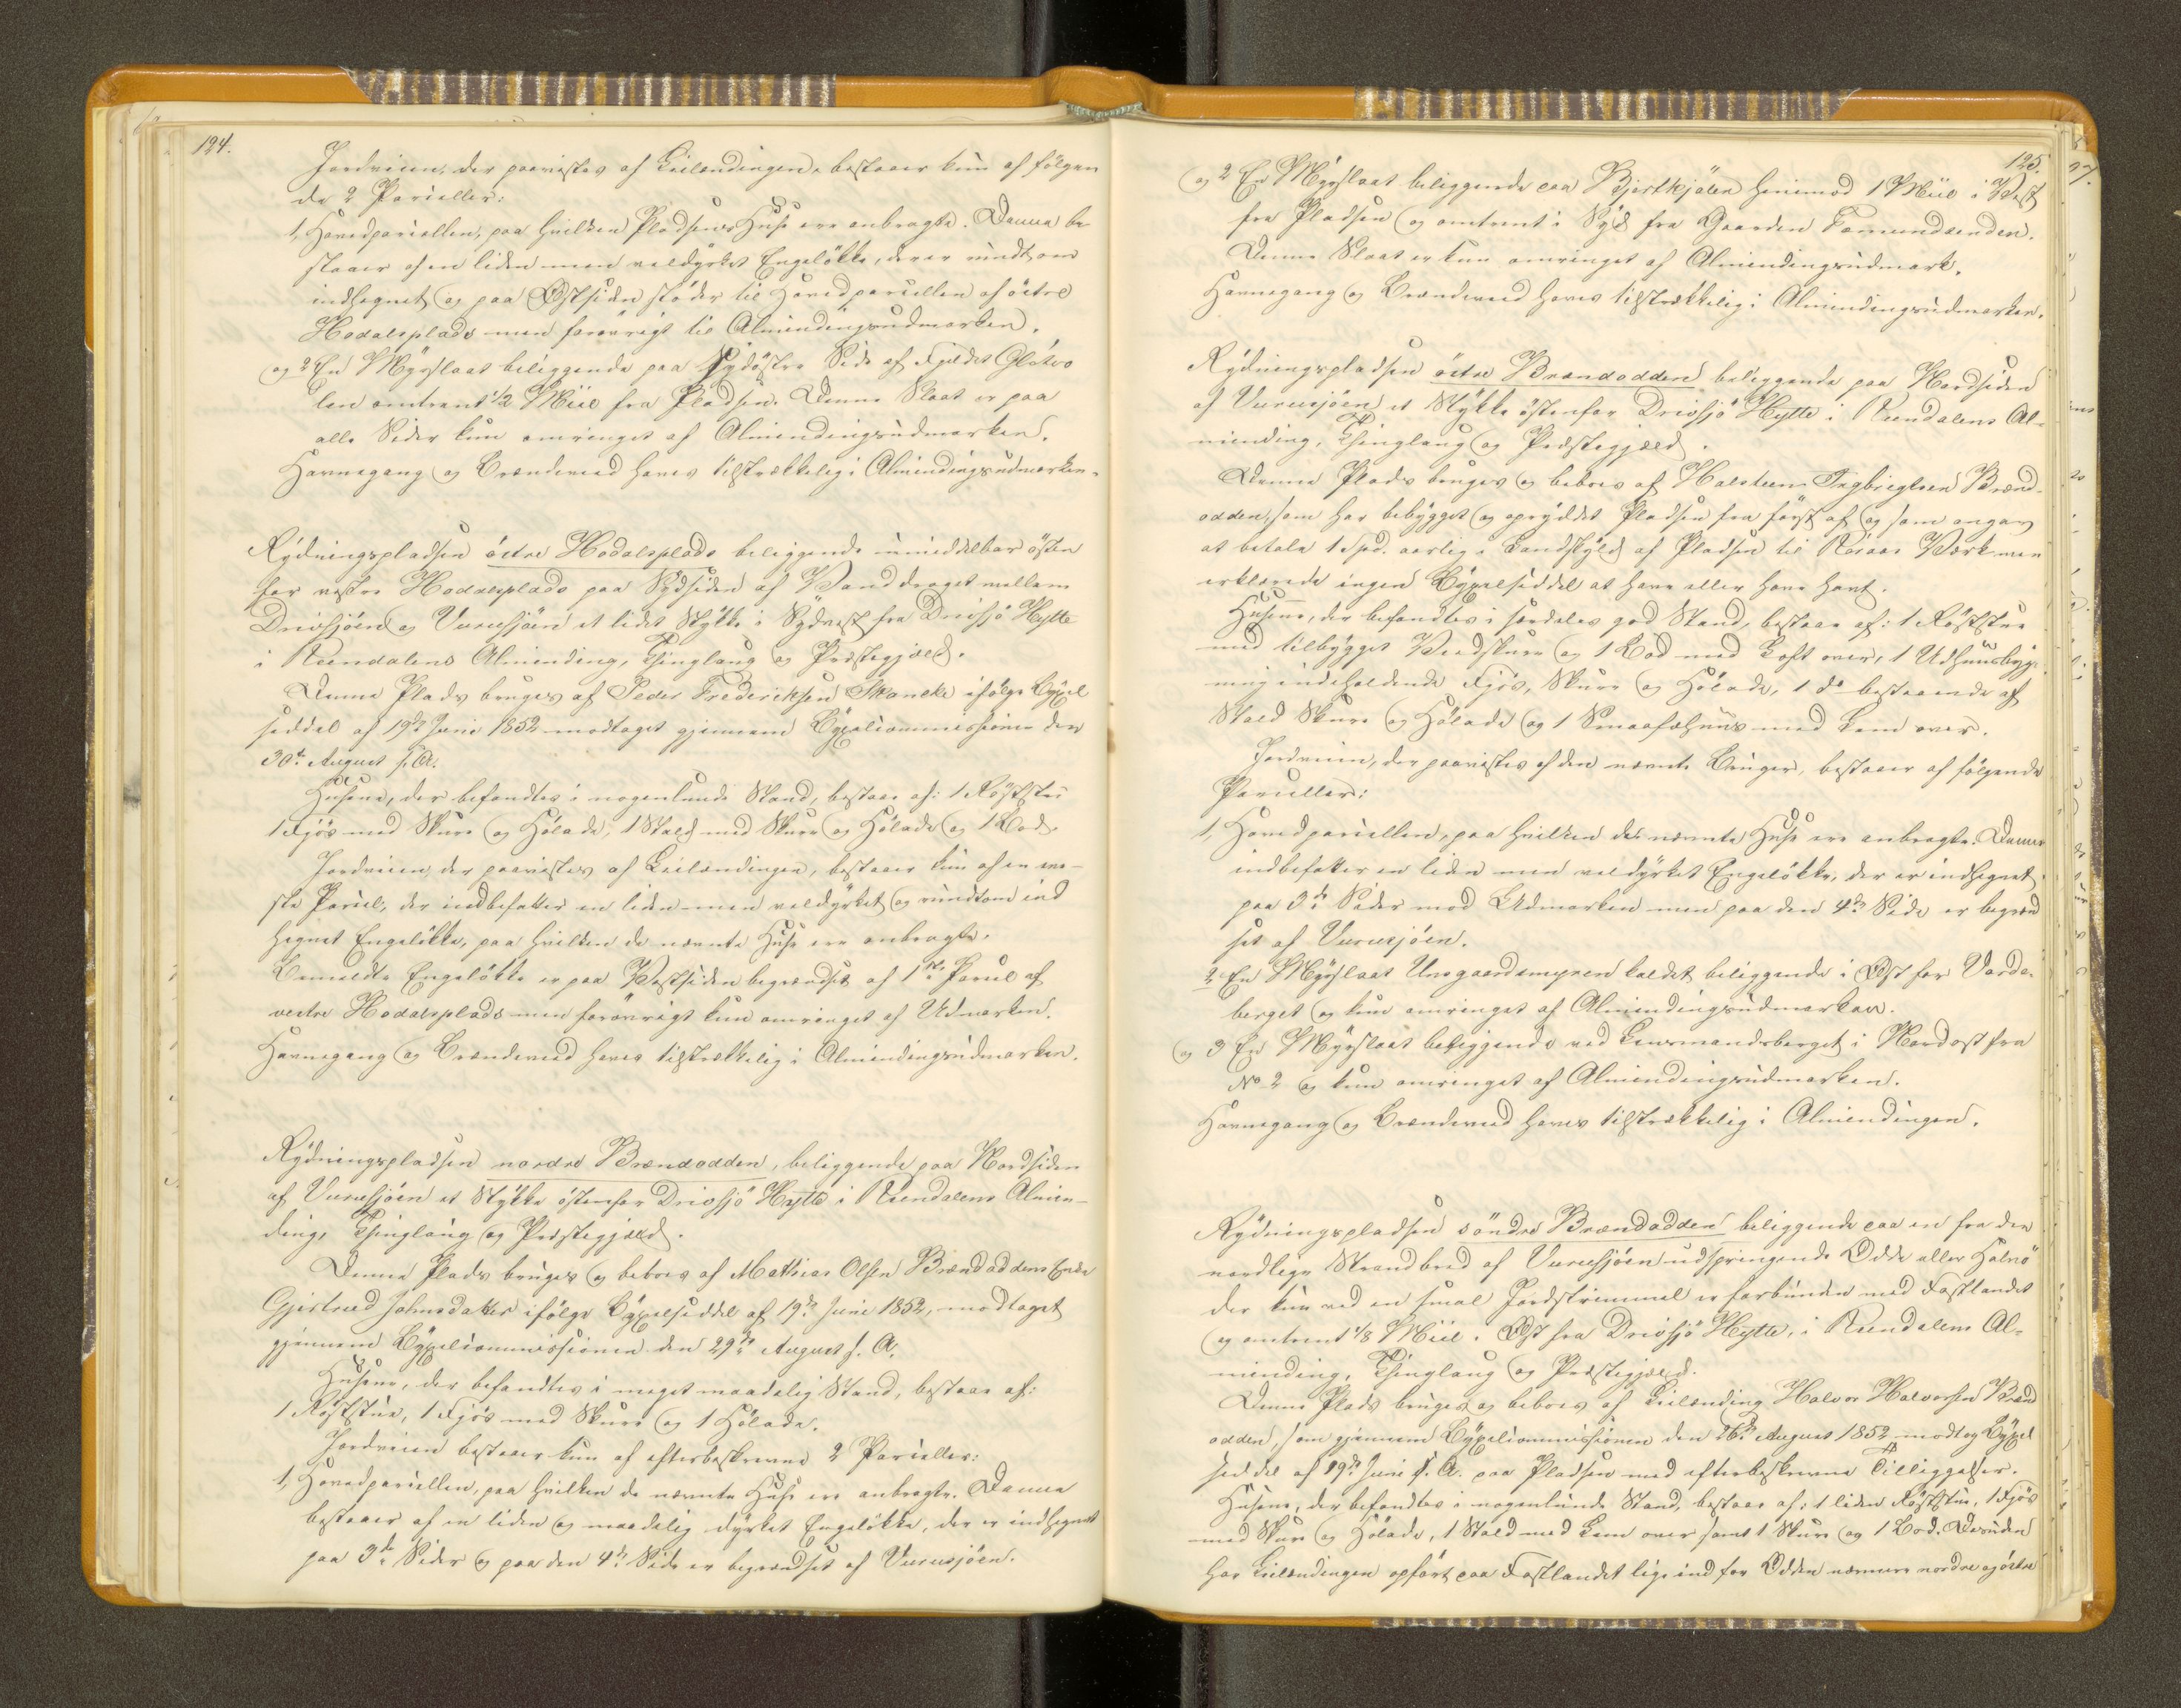 124.
Jordveien, der paavistes af Leilændingen, bestaaer kun af følgen
de 2 Parceller:
1, Hovedparcellen, paa hvilken Pladsens Huse ere anbragte. Denne be
staaer af en liden men veldyrket Engeløkke, der er rundtom
indhegnet og paa Østsiden støder til Hovedparcellen af östre
Hodalsplads men forøvrigt til Almindingsudmarken.
og 2 En Myrslaat beliggende paa Sydøstre Side af Fjeldet Gloter
len omtrent 1/2 Miil fra Pladsen. Denne Slaat er paa
alle Sider kun omringet af Almindingsudmarken.
Havnegang og Brændeved haves tilstrækkelig i Almindingsudmarken.
Rydningspladsen östre Hodalsplads beliggende umiddelbar östen
for vestre Hodalsplads paa Sydsiden af Vanddraget mellem
Drivsjöen og Vurrusjöen et lidet Stykke i Sydvest fra Drivsjö Hytte
i Rendalens Alminding, Thinglaug og Præstegjæld.
Denne Plads bruges af Peder Frederiksen Skancke ifølge Bygsel
seddel af 19de Juni 1852 modtaget gjennem Bygselcommissionen den
30te August s. A.
Husene, der befandtes i nogenlunde Stand, bestaae af: 1 Røststue
1 Fjös med Skure og Hölade, 1 Stald med Skure og Hölade og 1 Bod.
Jordveien, der paavistes af Leilændingen, bestaaer kun af en ene-
ste Parcel, der indbefatter en liden men veldyrket og rundtom ind
hegnet Engeløkke, paa hvilken de nævnte Huse ere anbragte.
Bemeldte Engeløkke er paa Vestsiden begrændset af 1ste Parcel af
vestre Hodalsplads men forövrigt kun omringet af Udmarken.
Havnegang og Brændeved haves tilstrækkelig i Almindingsudmarken.
Rydningspladsen nordre Brændodden, beliggende paa Nordsiden
af Vurrusjöen et Stykke östenfor Drivsjö Hytte i Rendalens Almin-
ding, Thinglaug og Præstegjæld.
Denne Plads bruges og beboes af Mathias Olsen Brændoddens Enke
Gjertrud Johnsdatter ifølge Bygselseddel af 19de Juni 1852, modtaget
gjennem Bygselcommissionen den 29de August s. A.
Husene, der befandtes i meget maadelig Stand, bestaae af:
1 Røststue, 1 Fjös med Skure og 1 Hölade.
Jordveien bestaaer kun af efterbeskrevne 2 Parceller:
1, Hovedparcellen, paa hvilken de nævnte Huse ere anbragte. Denne
bestaaer af en liden og maadelig dyrket Engeløkke, der er indhegnet
paa 3de Sider og paa den 4de Side er begrændset af Vurrusjöen.
125.
og 2 En Myrslaat beliggende paa Bjertkjölen henimod 1 Miil i Vest
fra Pladsen og omtrent i Syd fra Gaarden Fæmundsenden.
Denne Slaat er kun omringet af Almindingsudmark.
Havnegang og Brændeved haves tilstrækkelig i Almindingsudmarken.
Rydningspladsen östre Brændodden beliggende paa Nordsiden
af Vurrusjöen et Stykke östenfor Drivsjö Hytte i Rendalens Al-
minding, Thinglaug og Præstegjæld.
Denne Plads bruges og beboes af Halsteen Ingbrigtsen Brænd-
odden, som har bebygget og opryddet Pladsen fra først af og som angav
at betale 1 Spd. aarlig i Landskyld af Pladsen til Röraas Værk men
erklærede ingen Bygselseddel at have eller have havt.
Husene, der befandtes i særdeles god Stand, bestaae af: 1 Röststue
med tilbygget Vedskure og 1 Bod med Loft over, 1 Udhuusbyg-
ning indeholdende Fjös, Skure og Hölade, 1 do bestaaende af
Stald Skure og Hölade og 1 Smaafæhuus med Lem over.
Jordveien, der paavistes af den nævnte Bruger, bestaaer af følgende
Parceller:
1, Hovedparcellen, paa hvilken de nævnte Huse ere anbragte. Denne
indbefatter en liden men veldyrket Engeløkke, der er indhegnet
paa 3de Sider mod Udmarken men paa den 4de Side er begrænd
set af Vurrusjöen.
2 En Myrslaat Unsgaardsmyren kaldet beliggende i Öst for Varde-
berget og kun omringet af Almindingsudmarken.
og 3 En Myrslaat beliggende ved Lensmandsberget i Nordost fra
No 2 og kun omringet af Almindingsudmarken.
Havnegang og Brændeved haves tilstrækkelig i Almindingen.
Rydningspladsen söndre Brændodden beliggende paa en fra den
nordlige Strandbred af Vurrusjöen udspringende Odde eller Halvö
der kun ved en smal Jordstrimmel er forbunden med Fastlandet
og omtrent 1/8 Miil i Öst fra Drivsjö Hytte, i Rendalens Al-
minding, Thinglaug og Præstegjæld.
Denne Plads bruges og beboes af Leilænding Halvor Halvorsen Brænd
odden, som gjennem Bygselcommissionen den 26de August 1852 modtog Bygsel
seddel af 19de Juni s. A. paa Pladsen med efterbeskrevne Tilliggelser.
Husene, der befandtes i nogenlunde Stand, bestaae af: 1 liden Röststue, 1 Fjös
med Skure og Hölade, 1 Stald med Lem over samt 1 Skure og 1 Bod. Desuden
har Leilændingen opført paa Fastlandet lige ind for Odden nærmere nordre og östre